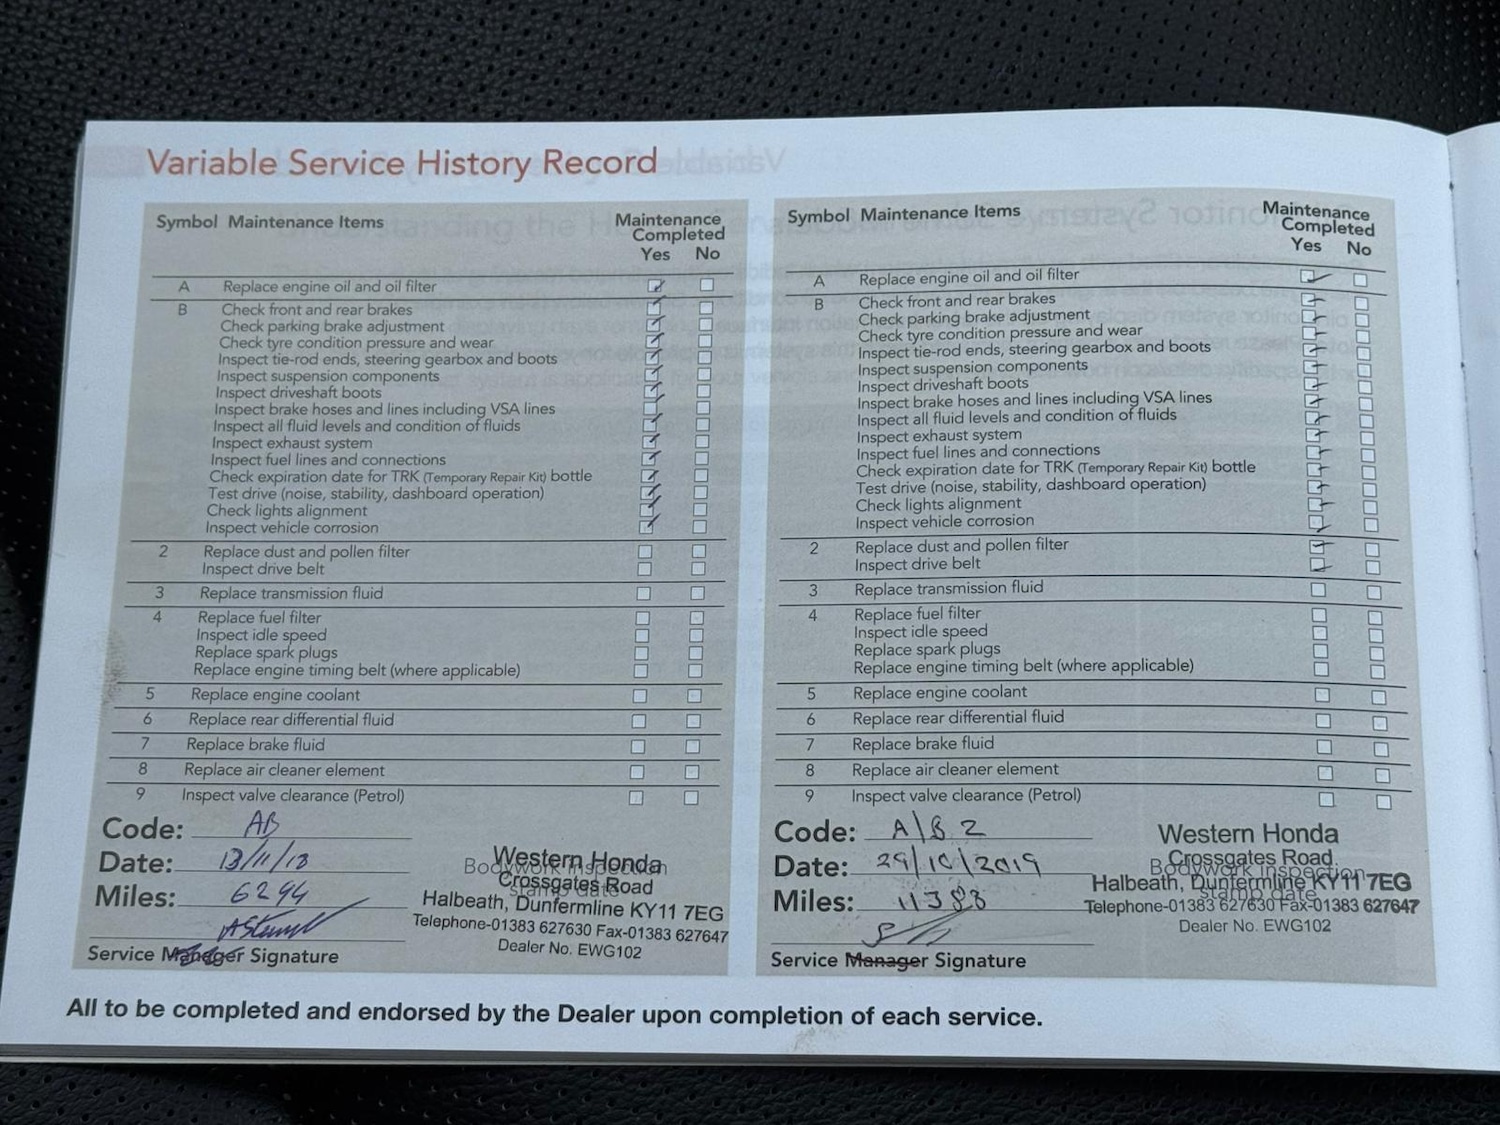 Variable Service History Record
Symbol Maintenance Items
Maintenance
Completed
Yes No
A Replace engine oil and oil filter
B Check front and rear brakes
Check parking brake adjustment
Check tyre condition pressure and wear
Inspect tie-rod ends, steering gearbox and boots
Inspect suspension components
Inspect driveshaft boots
Inspect brake hoses and lines including VSA lines
Inspect all fluid levels and condition of fluids
Inspect exhaust system
Inspect fuel lines and connections
Check expiration date for TRK (Temporary Repair Kit) bottle
Test drive (noise, stability, dashboard operation)
Check lights alignment
Inspect vehicle corrosion
2 Replace dust and pollen filter
Inspect drive belt
3 Replace transmission fluid
4 Replace fuel filter
Inspect idle speed
Replace spark plugs
Replace engine timing belt (where applicable)
5 Replace engine coolant
6 Replace rear differential fluid
7 Replace brake fluid
8 Replace air cleaner element
9 Inspect valve clearance (Petrol)
Code: AB
Date: 13/11/18
Miles: 6294
Service Manager Signature
Bodywork Inspection
stamp date
Western Honda
Crossgates Road
Halbeath, Dunfermline KY11 7EG
Telephone-01383 627630 Fax-01383 627647
Dealer No. EWG102
Symbol Maintenance Items
Maintenance
Completed
Yes No
A Replace engine oil and oil filter
B Check front and rear brakes
Check parking brake adjustment
Check tyre condition pressure and wear
Inspect tie-rod ends, steering gearbox and boots
Inspect suspension components
Inspect driveshaft boots
Inspect brake hoses and lines including VSA lines
Inspect all fluid levels and condition of fluids
Inspect exhaust system
Inspect fuel lines and connections
Check expiration date for TRK (Temporary Repair Kit) bottle
Test drive (noise, stability, dashboard operation)
Check lights alignment
Inspect vehicle corrosion
2 Replace dust and pollen filter
Inspect drive belt
3 Replace transmission fluid
4 Replace fuel filter
Inspect idle speed
Replace spark plugs
Replace engine timing belt (where applicable)
5 Replace engine coolant
6 Replace rear differential fluid
7 Replace brake fluid
8 Replace air cleaner element
9 Inspect valve clearance (Petrol)
Code: A\B 2
Date: 29/10/2019
Miles: 11388
Service Manager Signature
Bodywork Inspection
stamp date
Western Honda
Crossgates Road.
Halbeath, Dunfermline KY11 7EG
Telephone-01383 627630 Fax-01383 627647
Dealer No. EWG102
All to be completed and endorsed by the Dealer upon completion of each service.